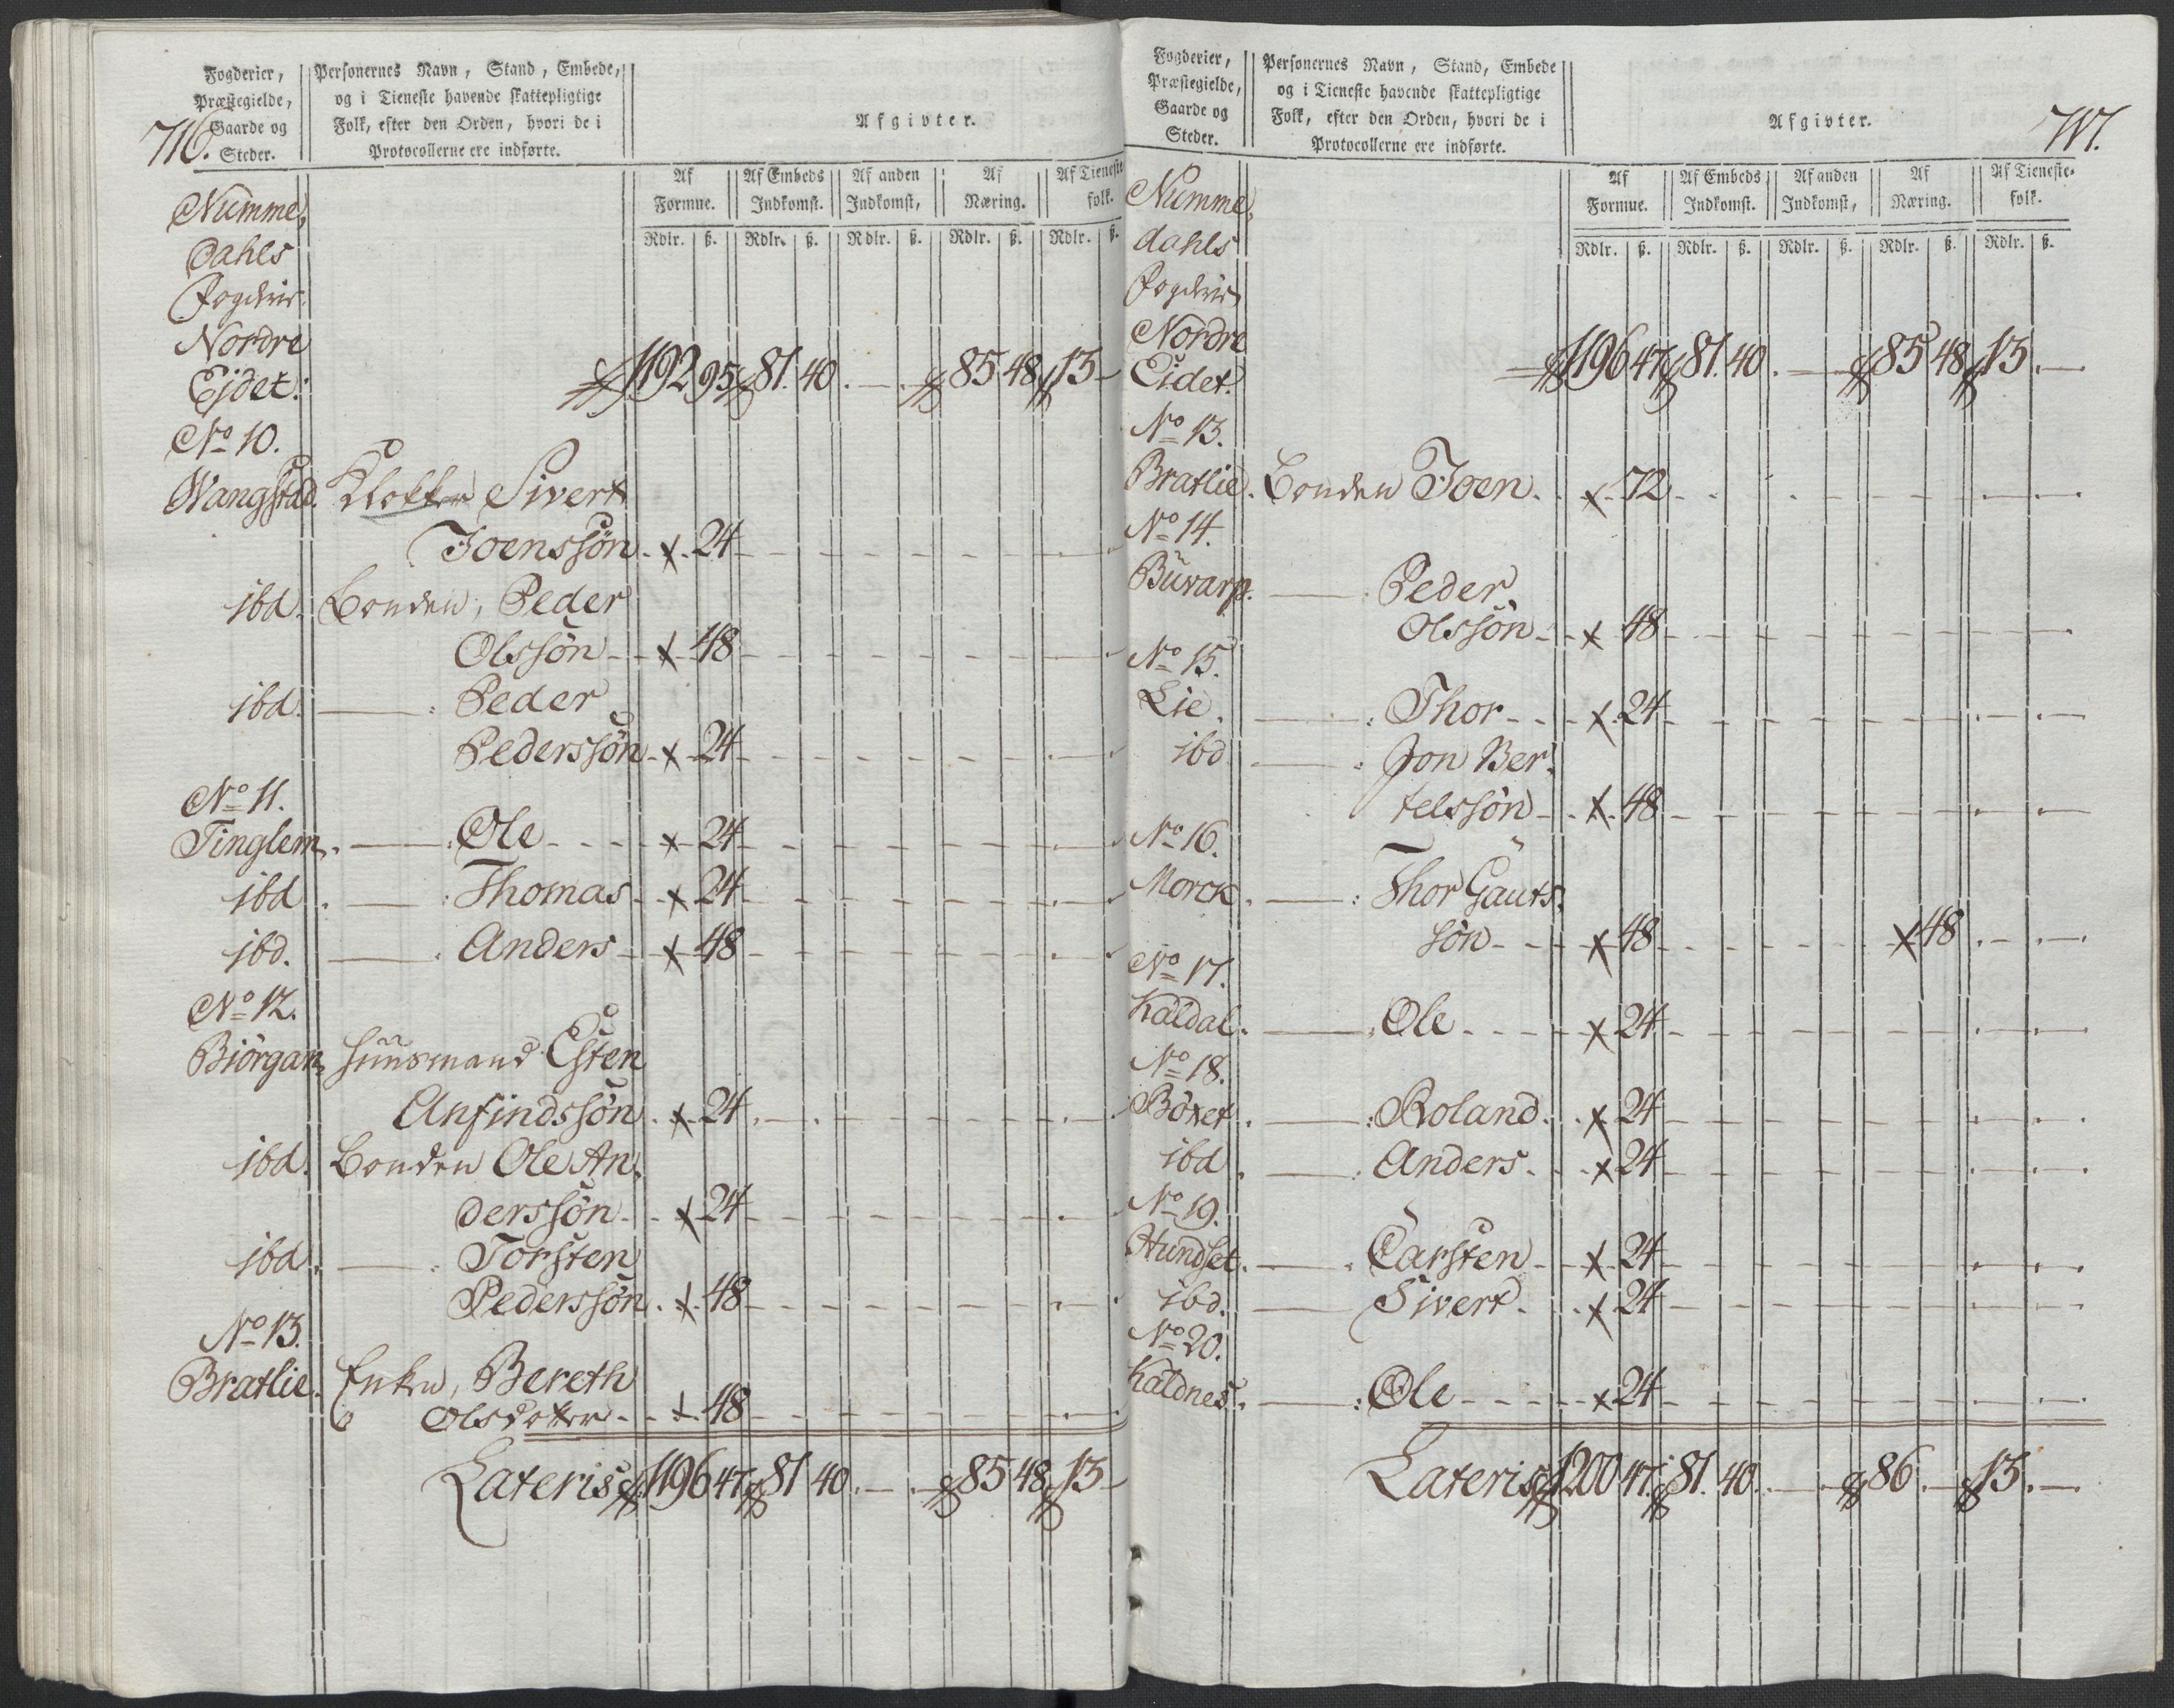 716.
Fogderier,
Præstegielde,
Gaarde og
Steder.
Personernes Navn, Stand, Embede,
og i Tieneste havende skattepligtige
Folk, efter den Orden, hvori de i
Protocollerne ere indførte.
Afgivter.
Af Formue. Af Embeds Indkomst. Af anden Indkomst, Af Næring. Af Tieneste folk.
Rdlr. ß. Rdlr. ß. Rdlr. ß. Rdlr. ß. Rdlr. ß.
Numme,
dahls
Fogderie
Nordre
Ejdet: 1192 95 81. 40. — . 85 48 13 —
No 10.
Wangstad. Klokker Sivert
Joenssøn. x. 24
ibd. Bonden, Peder
Olssøn x 48
ibd. — : Peder
Pederssøn x 24
No 11.
Tinglem. — : Ole x 24
ibd. — : Thomas x 24
ibd. — : Anders x 48
No 12.
Biörgan, Huusmand Esten
Anfindssøn. x 24
ibd. Bonden Ole An,
derssøn x 24
ibd. — : Torsten
Pederssøn. x. 48
No 13.
Bratlie. Enken, Bereth
Olsdotter. x. 48
Lateris 1196 47 81 40. — . 85 48 13 —
717.
Fogderier,
Præstegielde,
Gaarde og
Steder.
Personernes Navn, Stand, Embede
og i Tieneste havende skattepligtige
Folk, efter den Orden, hvori de i
Protocollerne ere indførte.
Afgivter.
Af Formue. Af Embeds Indkomst. Af anden Indkomst, Af Næring. Af Tieneste- folk.
Rdlr. ß. Rdlr. ß. Rdlr. ß. Rdlr. ß. Rdlr. ß.
Numme,
dahls
Fogderie
Nordre
Eidet. 1196 47 81. 40. — 85 48 13. —
No 13.
Bratlie. Bonden Joen. x. 72
No 14.
Buvarp. — : Peder
Olssøn x 48
No 15.
Lie. — : Thor x 24
ibd. — : Jon Ber,
telssøn x 48
No 16.
Morck. — : Thor Gauts,
søn x 48 x 48
No 17.
Kaldal. — : Ole x 24
No 18.
Böxet. — : Roland. x 24
ibd. — : Anders. x 24
No 19.
Hundset. — : Carsten x 24
ibd. — Sivert. x 24
No 20.
Kaldnes. — : Ole x 24
Lateris 1200 47. 81. 40. — 86. — 13. —